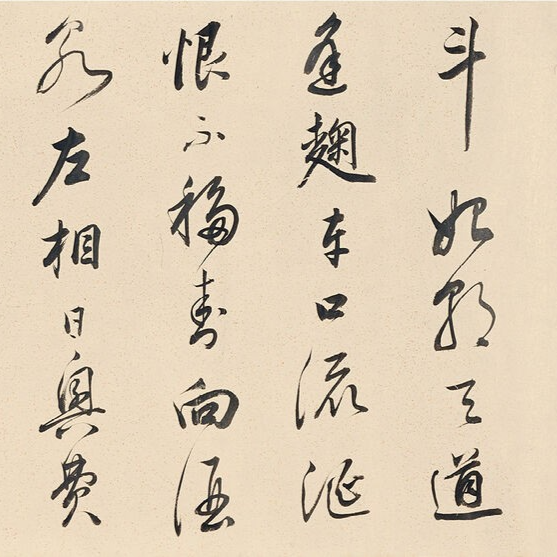 斗始朝天道
逢麴車口流涎
恨不移封向酒
泉左相日興費